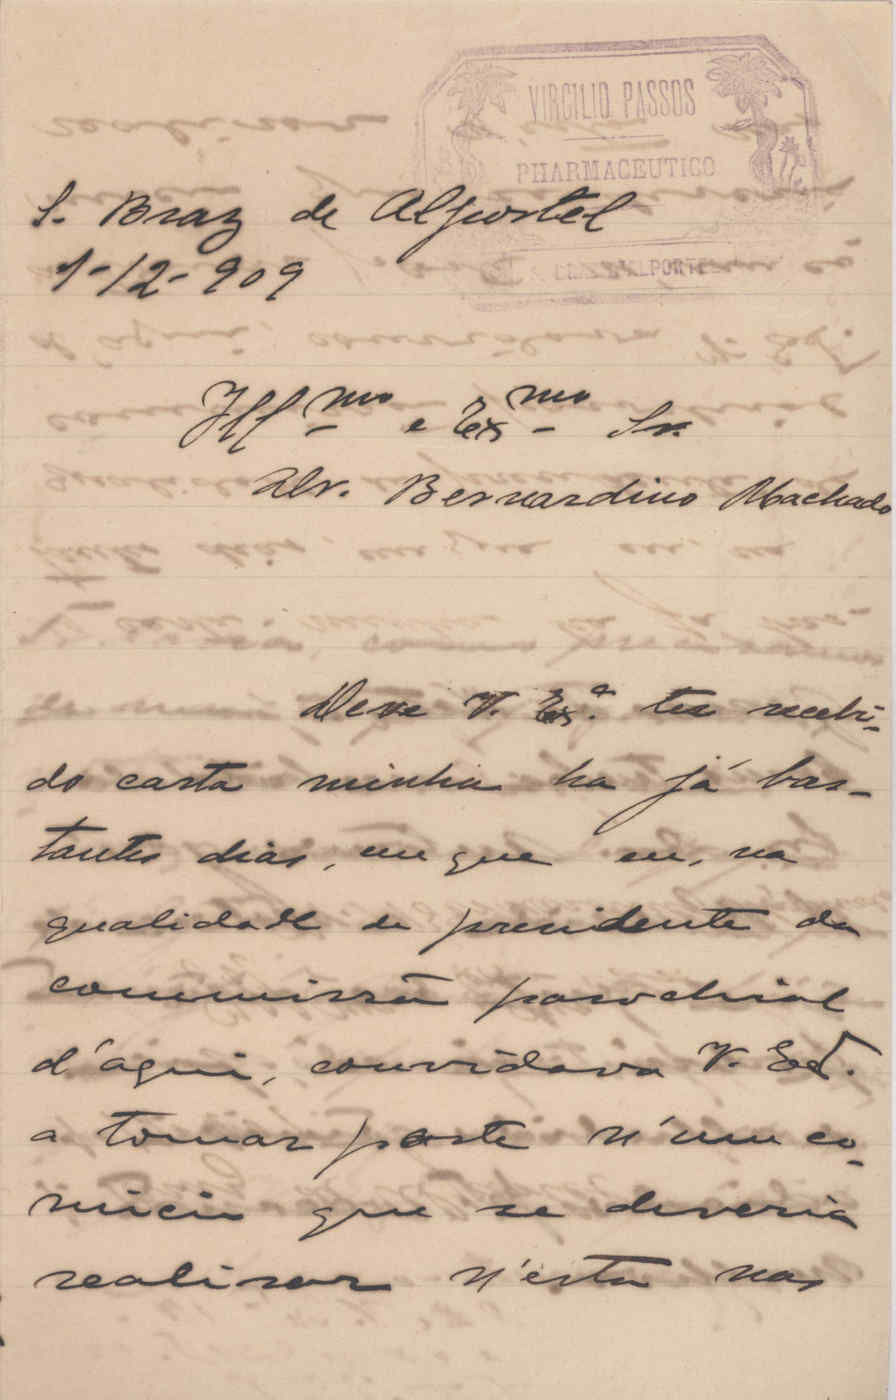 VIRGILIO PASSOS
PHARMACEUTICO
S. Braz de Alportel
1-12-909
Ill.mo e Ex.mo Sr.
Dr. Bernardino Machado
Deve V. Ex.ª ter recebi-
do carta minha ha já bas-
tantes dias, em que eu, na
qualidade de presidente da
commissão parochial
d'aqui, convidava V. Ex.ª
a tomar parte n'um co-
micio que se deveria
realisar n'esta nas